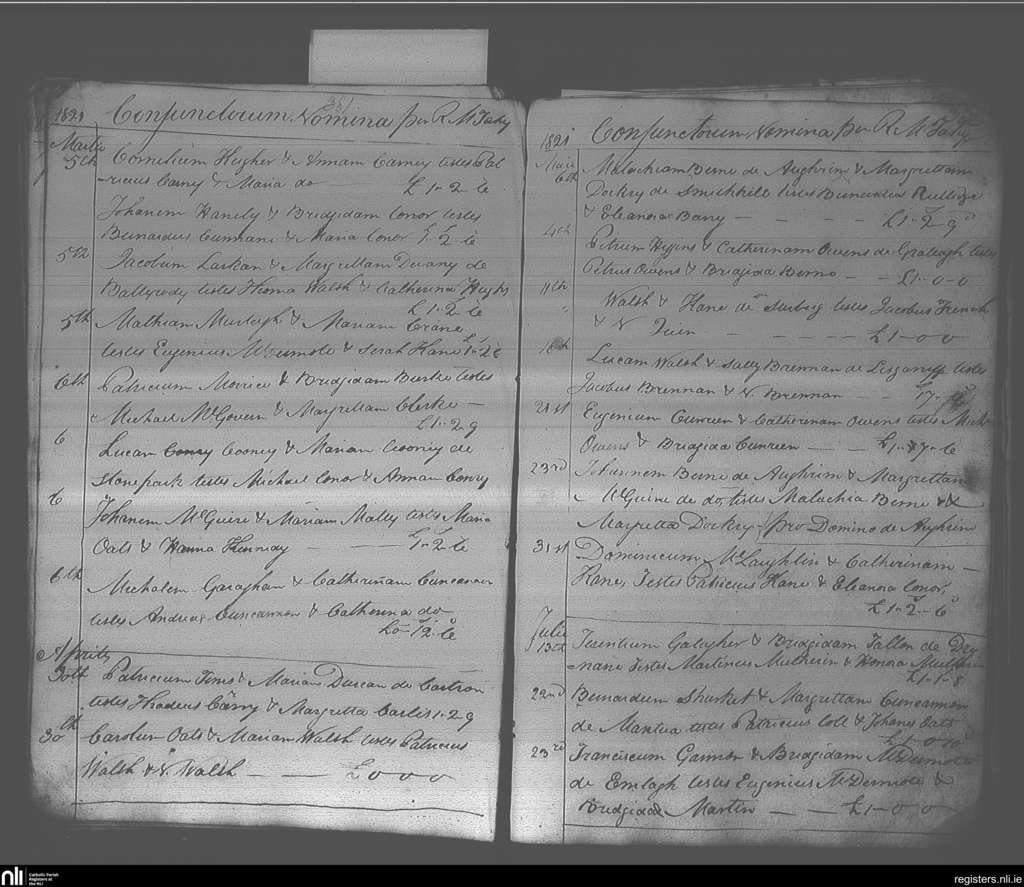 1821 Conjunctorum Nomina per R. McTasky
Martii
5th Cornelium Hugher & Annam Carney testes Pat
-ricius Carny & Maria do — £1-2-6
Johanem Hanely & Bridgidam Conor testes
Bernardus Cunnane & Maria Conor 1-2-6
5th Jacobum Larkan & Margrettam Devany de
Ballyroddy testes Thoma Walsh & Catherina Hughs
£1-2-6
5th Mathian Murtagh & Mariam Crane
testes Eugenius McDermote & Sarah Hane £1-2-6
6th Patricium Morice & Bridgidam Burke testes
Michael McGovern & Margrettam Clerke —
£1-2-9
6 Lucam Conry Cooney & Mariam Cooney de
Stonepark testes Michael Conor & Annam Conry
6 Johanem McGuire & Mariam Mally testes Maria
Oats & Hanna Kennedy — £1-2-6
6th Michalem Garaghan & Catherinam Cuncannon
testes Andreas Cuncannon & Catherina do
£0-12-6
Aprilis
30th Patricium Tims & Mariam Duncan de Cartron
testes Thadeus Carry & Margretta Carlis 1-2-9
30th Carolum Oats & Mariam Walsh testes Patricius
Walsh & N. Walsh — — £0 0 0
1821 Conjunctorum Nomina per R. McTasky
Maii
6th Malachiam Berne de Aughrim & Margrettam
Dockry de testes Bernardus Rutledge
& Eleanora Barry — — — £1-2-9
4th Petrum Higgins & Catherinam Owens de testes
Petrus Owens & Bragida Berno — — £1-0-0
11th Walsh & Hane de testes Jacobus French
& N. — — — £1-0-0
18th Lucam Walsh & Sally Brennan de testes
Jacobus Brennan & N. Brennan — — 17-
21st Eugenium Cunreen & Catherinam Owens testes Mich
Owens & Bragida Cunreen — £1-7-6
23rd Johannem Berne de Aughrim & Margrettam
McGuire de do, testes Malachia Berne &
Margretta Dockry - pro Domino de Aughrim
31st Dominicum McLaughlin & Catherinam —
Hane, Testes Patricius Hane & Eleanora Conor,
£1-2-6
Julii
13th Terentium Galagher & Bridgidam Fallon de
-nane Testes Martinus Mulherin & Honora Mulherin
£1-1-8
22nd Bernardum Sharket & Margrettam Cuncannon
de Mantua testes Patricius Coll & Johanes Oats
£1-0-10
23rd Franciscum Gannon & Bridgidam McDermote
de Emlagh testes Eugenius McDermote &
Bridgidae Martin — — £1-0-0
nli Catholic Parish
Registers at
the NLI
registers.nli.ie